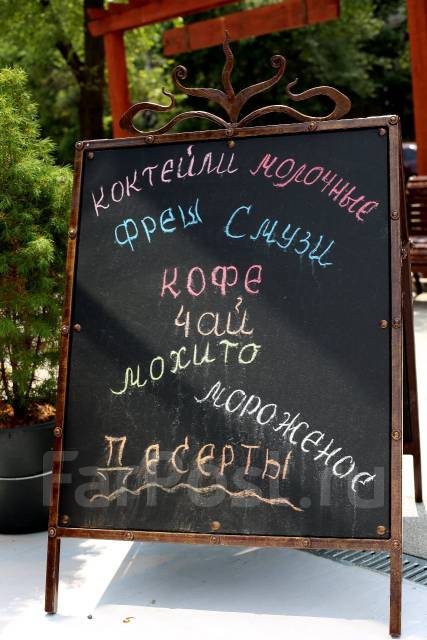 КОКТЕЙЛИ МОЛОЧНЫЕ
ФРЕШ СМУЗИ
КОФЕ
ЧАЙ
МОХИТО
МОРОЖЕНОЕ
ДЕСЕРТЫ
FarPost.ru